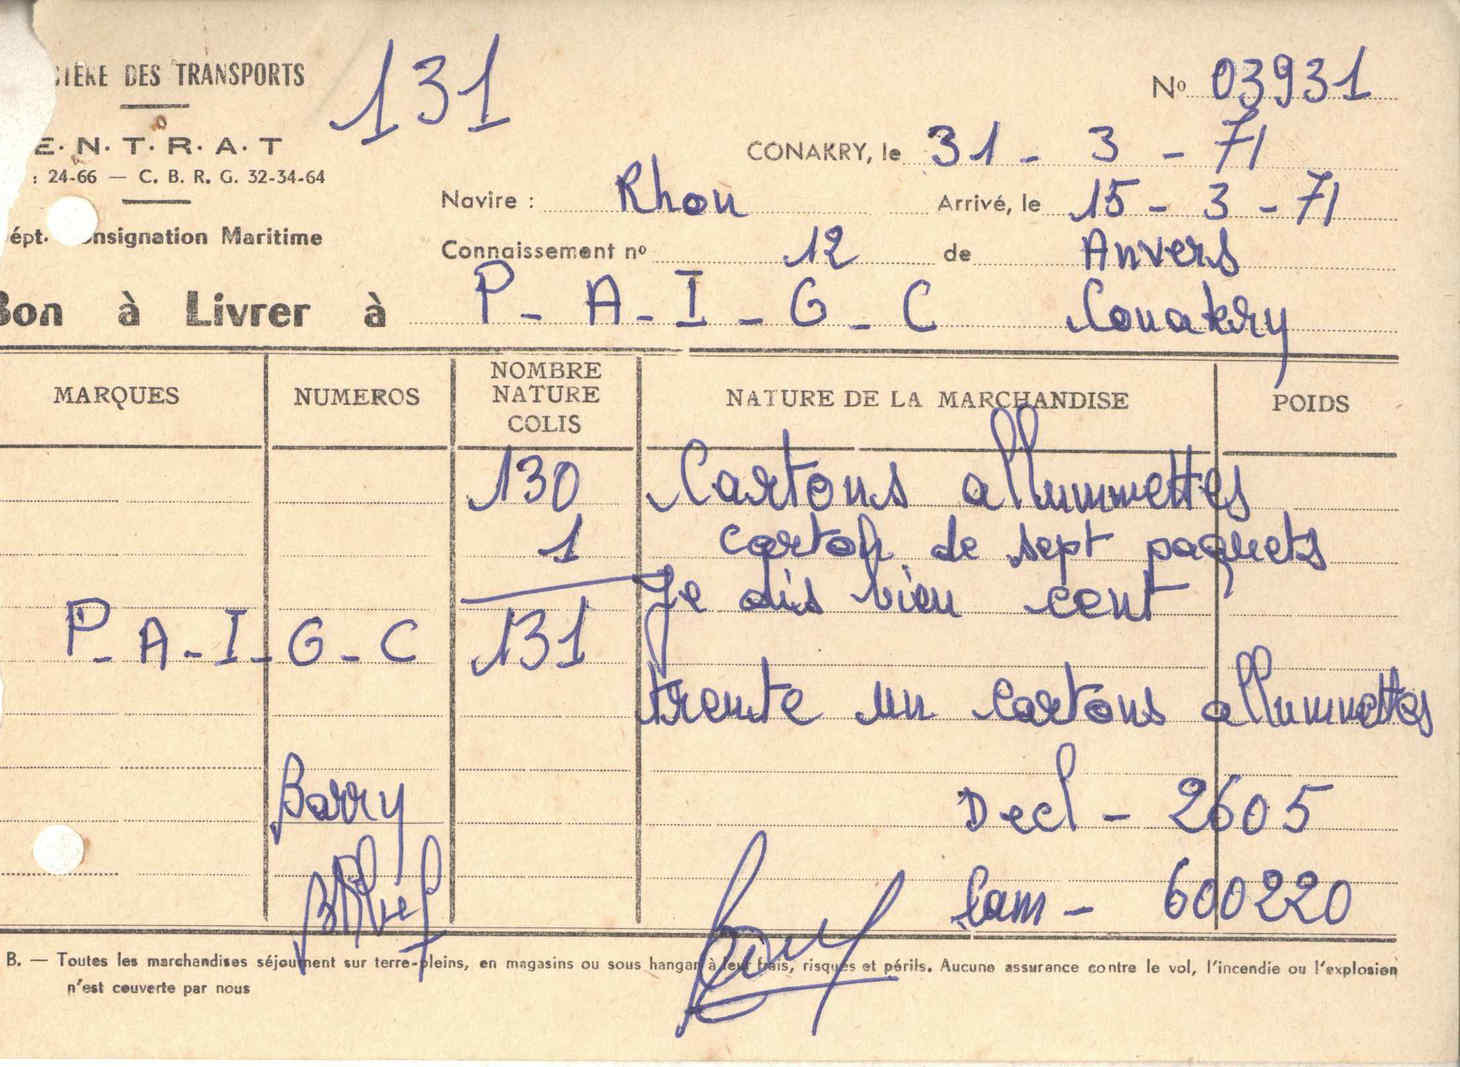 STÈRE DES TRANSPORTS
131
Nº 03931
E. N. T. R. A. T
CONAKRY, le 31 - 3 - 71
: 24-66 — C. B. R. G. 32-34-64
Navire : Rhon Arrivé, le 15 - 3 - 71
épt. onsignation Maritime
Connaissement nº 12 de Anvers
Bon à Livrer à P - A - I - G - C Conakry
MARQUES NUMEROS NOMBRE NATURE COLIS NATURE DE LA MARCHANDISE POIDS
130 Cartons allummettes
1 carton de sept paquets
Je dis bien cent
P - A - I - G - C 131
trente un cartons allummettes
Barry
Decl - 2605
Cam - 600220
B. — Toutes les marchandises séjournent sur terre-pleins, en magasins ou sous hangar à leur frais, risques et périls. Aucune assurance contre le vol, l'incendie ou l'explosion
n'est couverte par nous